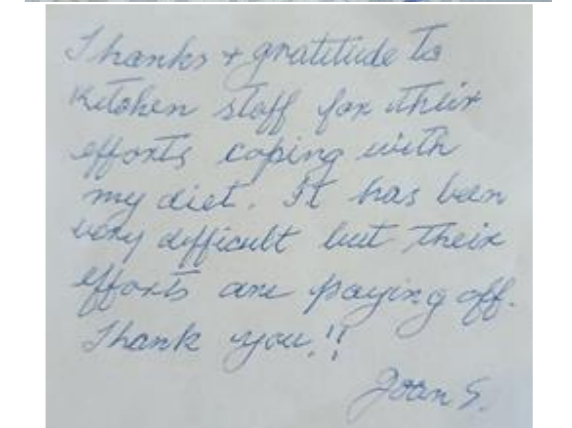 Thanks + gratitude to
Kitchen staff for their
efforts coping with
my diet. It has been
very difficult but their
efforts are paying off.
Thank you!!
Joan S.